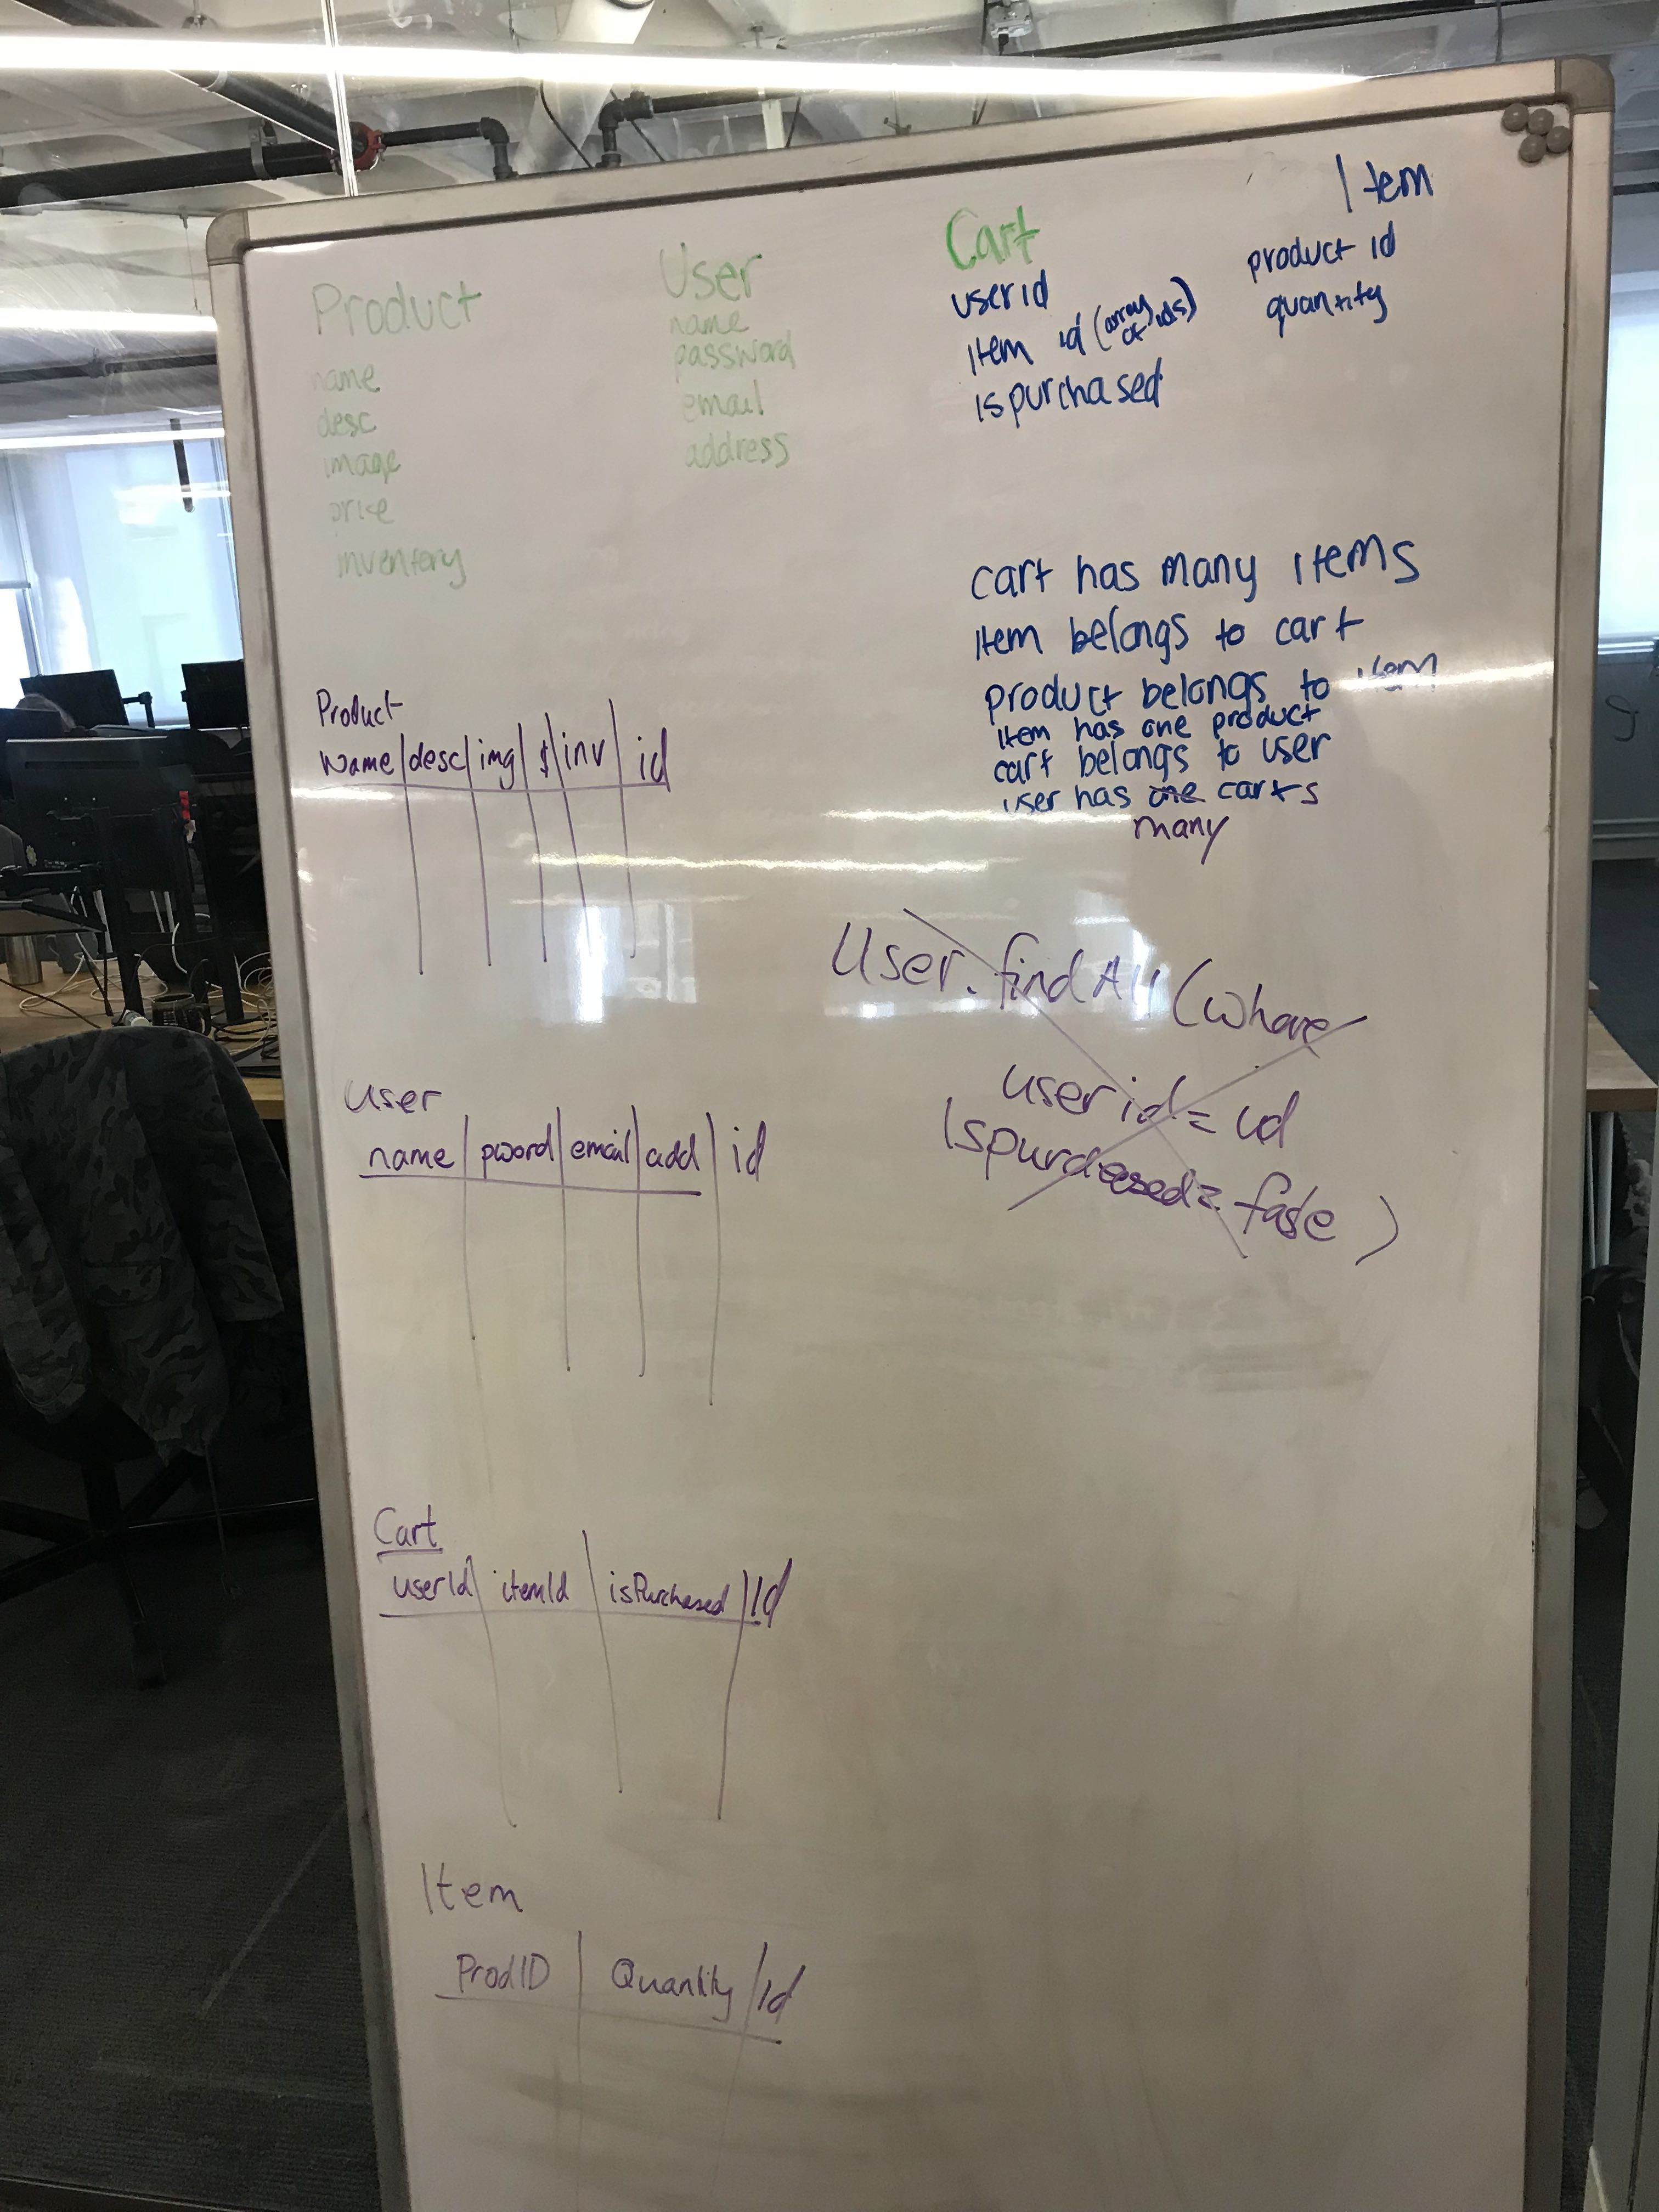 Product
name
desc
image
price
inventory
User
name
password
email
address
Cart
user id
item id (array of ids)
ispurchased
Item
product id
quantity
cart has many items
item belongs to cart
product belongs to item
item has one product
cart belongs to user
user has one carts
many
Product
name | desc | img | $ | inv | id
User.findAll(where
userid = id
Ispurchased = false)
User
name | pword | email | add | id
Cart
userId | itemId | isPurchased | Id
Item
ProdID | Quantity | Id